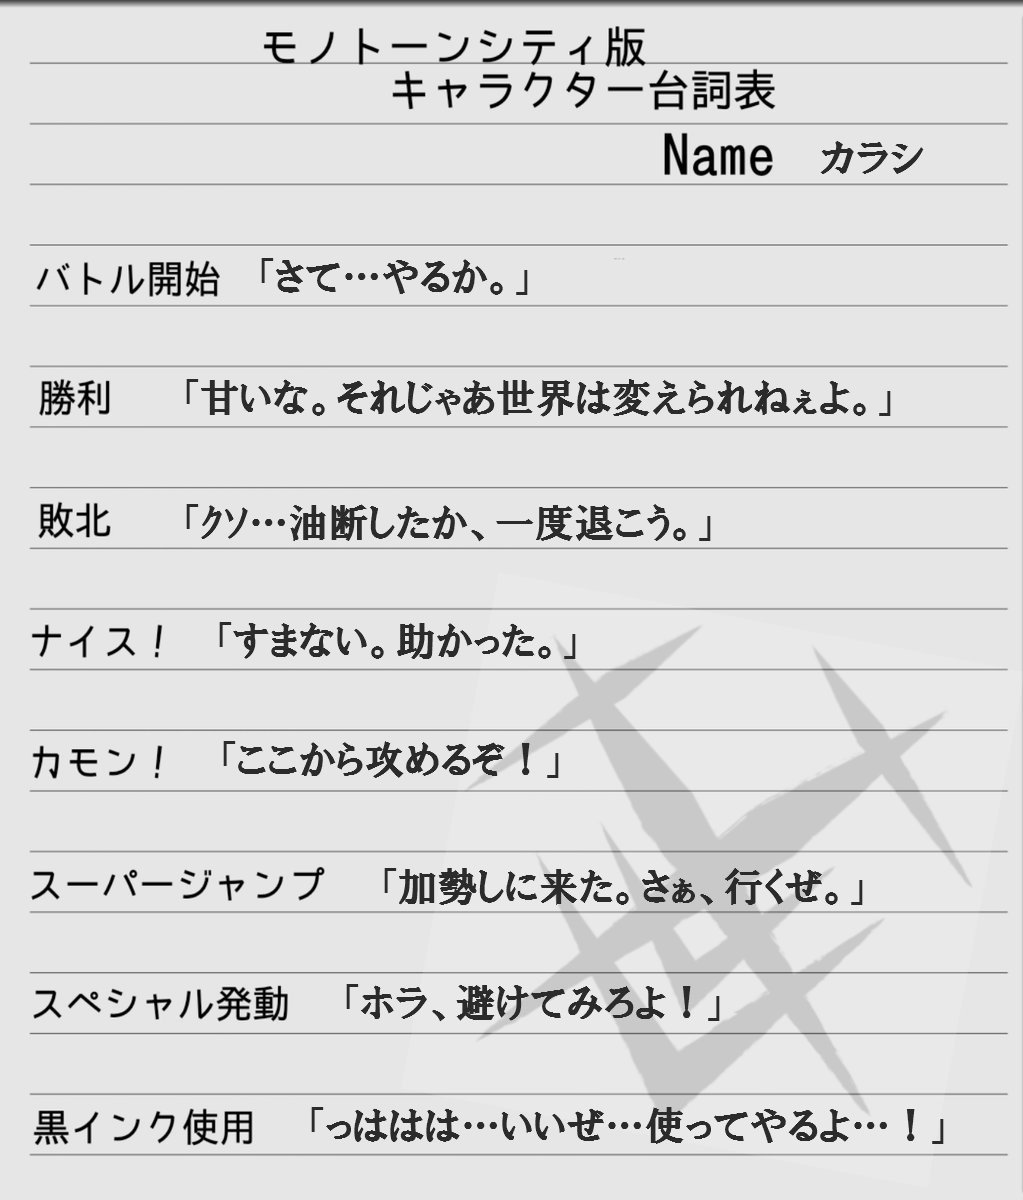 モノトーンシティ版
キャラクター台詞表
Name カラシ
バトル開始 「さて…やるか。」
勝利 「甘いな。それじゃあ世界は変えられねぇよ。」
敗北 「クソ…油断したか、一度退こう。」
ナイス！ 「すまない。助かった。」
カモン！ 「ここから攻めるぞ！」
スーパージャンプ 「加勢しに来た。さぁ、行くぜ。」
スペシャル発動 「ホラ、避けてみろよ！」
黒インク使用 「っははは…いいぜ…使ってやるよ…！」